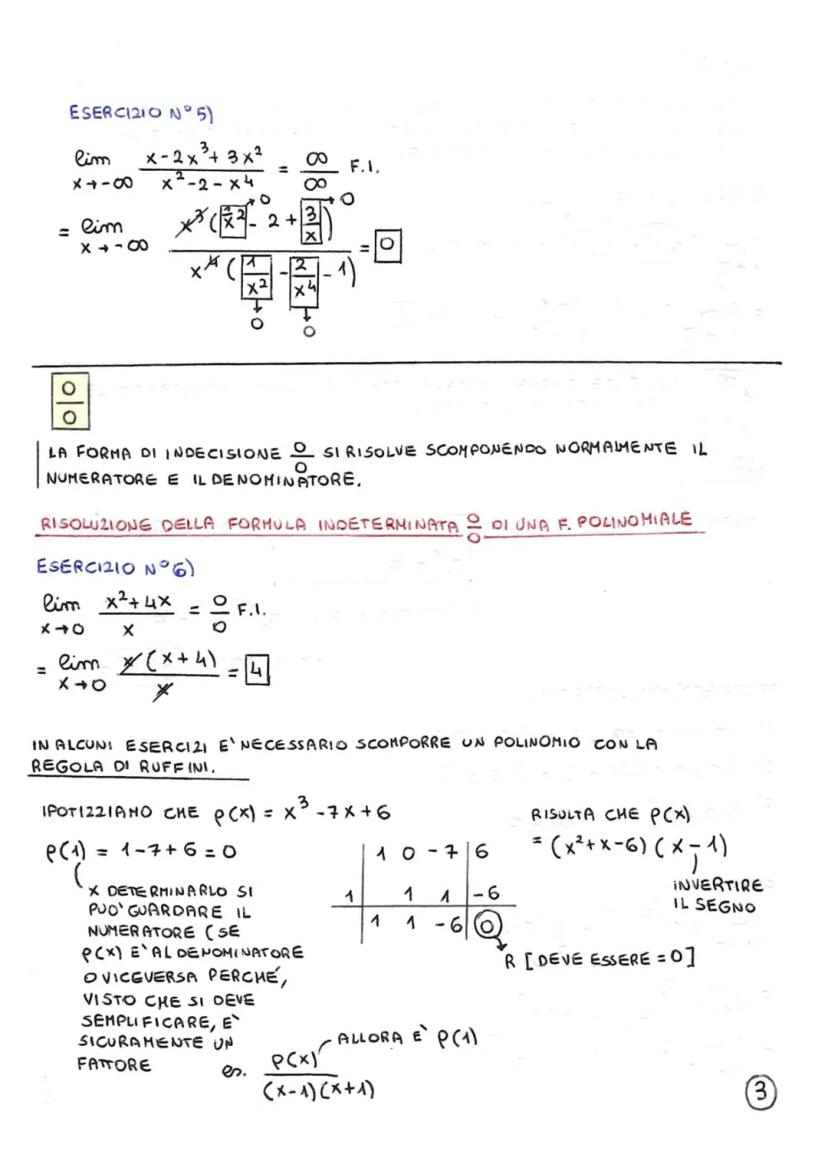 ESERCIZIO N°5)
lim x→-∞ (x-2x³+3x²)/(x²-2-x⁴) = ∞/∞ F.I.
= lim x→-∞ x³(1/x² - 2 + 3/x)/x⁴(1/x² - 2/x⁴ - 1) = 0
0 0
0 0
0/0
LA FORMA DI INDECISIONE 0/0 SI RISOLVE SCOMPONENDO NORMALMENTE IL
NUMERATORE E IL DENOMINATORE.
RISOLUZIONE DELLA FORMULA INDETERMINATA 0/0 DI UNA F. POLINOMIALE
ESERCIZIO N°6)
lim x→0 (x²+4x)/x = 0/0 F.I.
= lim x→0 x(x+4)/x = 4
IN ALCUNI ESERCIZI E' NECESSARIO SCOMPORRE UN POLINOMIO CON LA
REGOLA DI RUFFINI.
IPOTIZZIAMO CHE p(x) = x³-7x+6
p(1) = 1-7+6=0
X DETERMINARLO SI
PUO' GUARDARE IL
NUMERATORE (SE
p(x) E' AL DENOMINATORE
O VICEVERSA PERCHÉ,
VISTO CHE SI DEVE
SEMPLIFICARE, E'
SICURAMENTE UN
FATTORE
es. p(x)/(x-1)(x+1)
ALLORA È p(1)
1 0 -7 6
1 1 1 -6
1 1 -6 0
R [DEVE ESSERE =0]
RISULTA CHE p(x)
= (x²+x-6)(x-1)
INVERTIRE
IL SEGNO
3